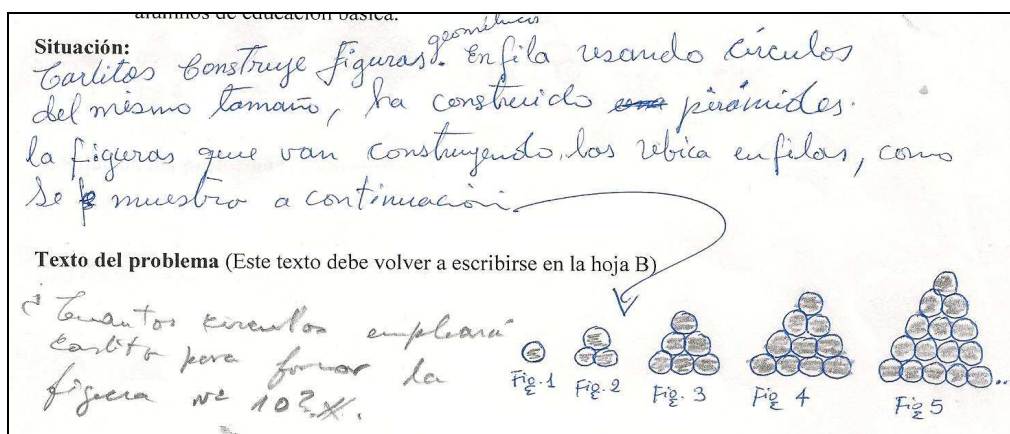 alumnos de educación básica.
Situación:
Carlitos Construye figuras geométricas. En fila usando círculos
del mismo tamaño, ha construido una pirámides.
la figuras que van construyendo las ubica en filas, como
se muestro a continuación.
Texto del problema (Este texto debe volver a escribirse en la hoja B)
¿Cuantos circulos empleará
Carlito para formar la
figura Nº 10?
Fig. 1 Fig. 2 Fig. 3 Fig 4 Fig 5